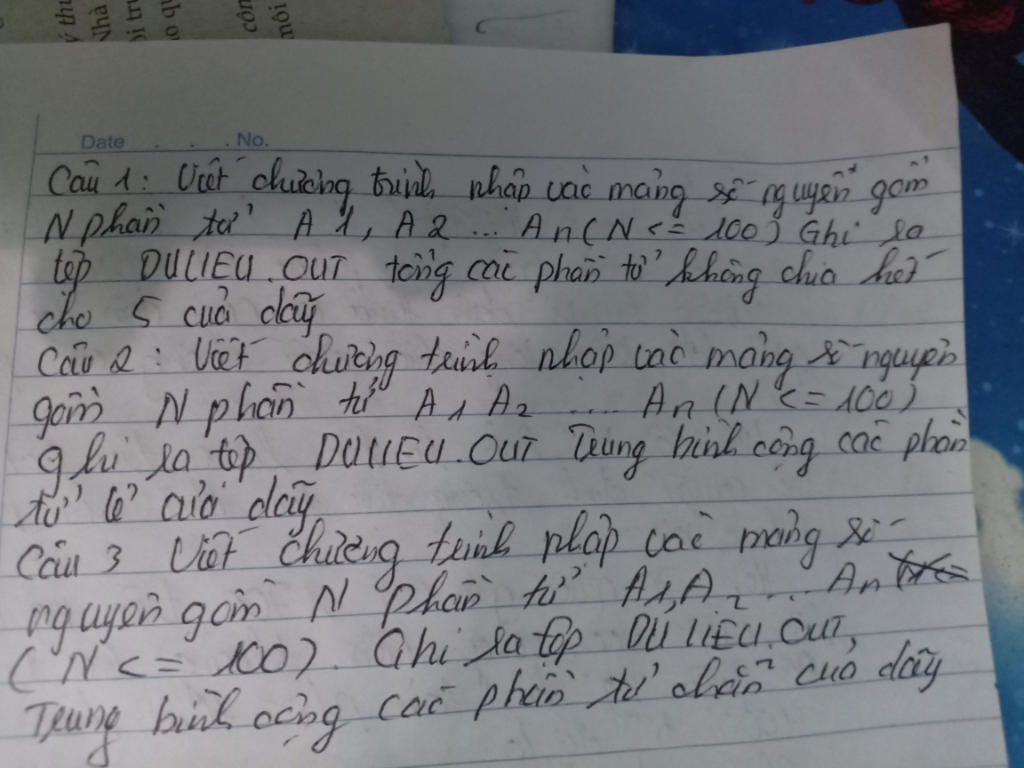 ý thu
Nhà
ời trư
ao qu
côn
môi
Date . . . No.
Câu 1: Viết chương trình nhập vào mảng số nguyên gồm
N phần tử A1, A2 ... An (N <= 100) Ghi ra
tệp DULIEU.OUT tổng các phần tử không chia hết
cho 5 của dãy
Câu 2: Viết chương trình nhập vào mảng số nguyên
gồm N phần tử A1 A2 .... An (N <= 100)
ghi ra tệp DULIEU.OUT Trung bình cộng các phần
tử lẻ của dãy
Câu 3 Viết chương trình nhập vào mảng số
nguyên gồm N phần tử A1, A2 ... An
(N <= 100). Ghi ra tệp DULIEU.OUT,
Trung bình cộng các phần tử chẵn của dãy